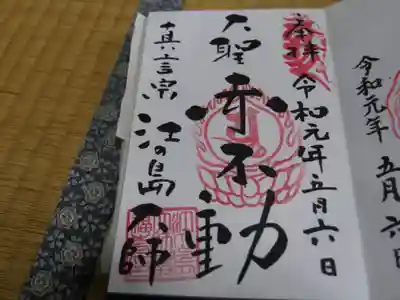 奉拝
令和元年五月六日
大聖
赤不動
真言宗
江の島
大師
令和元年
五月六日